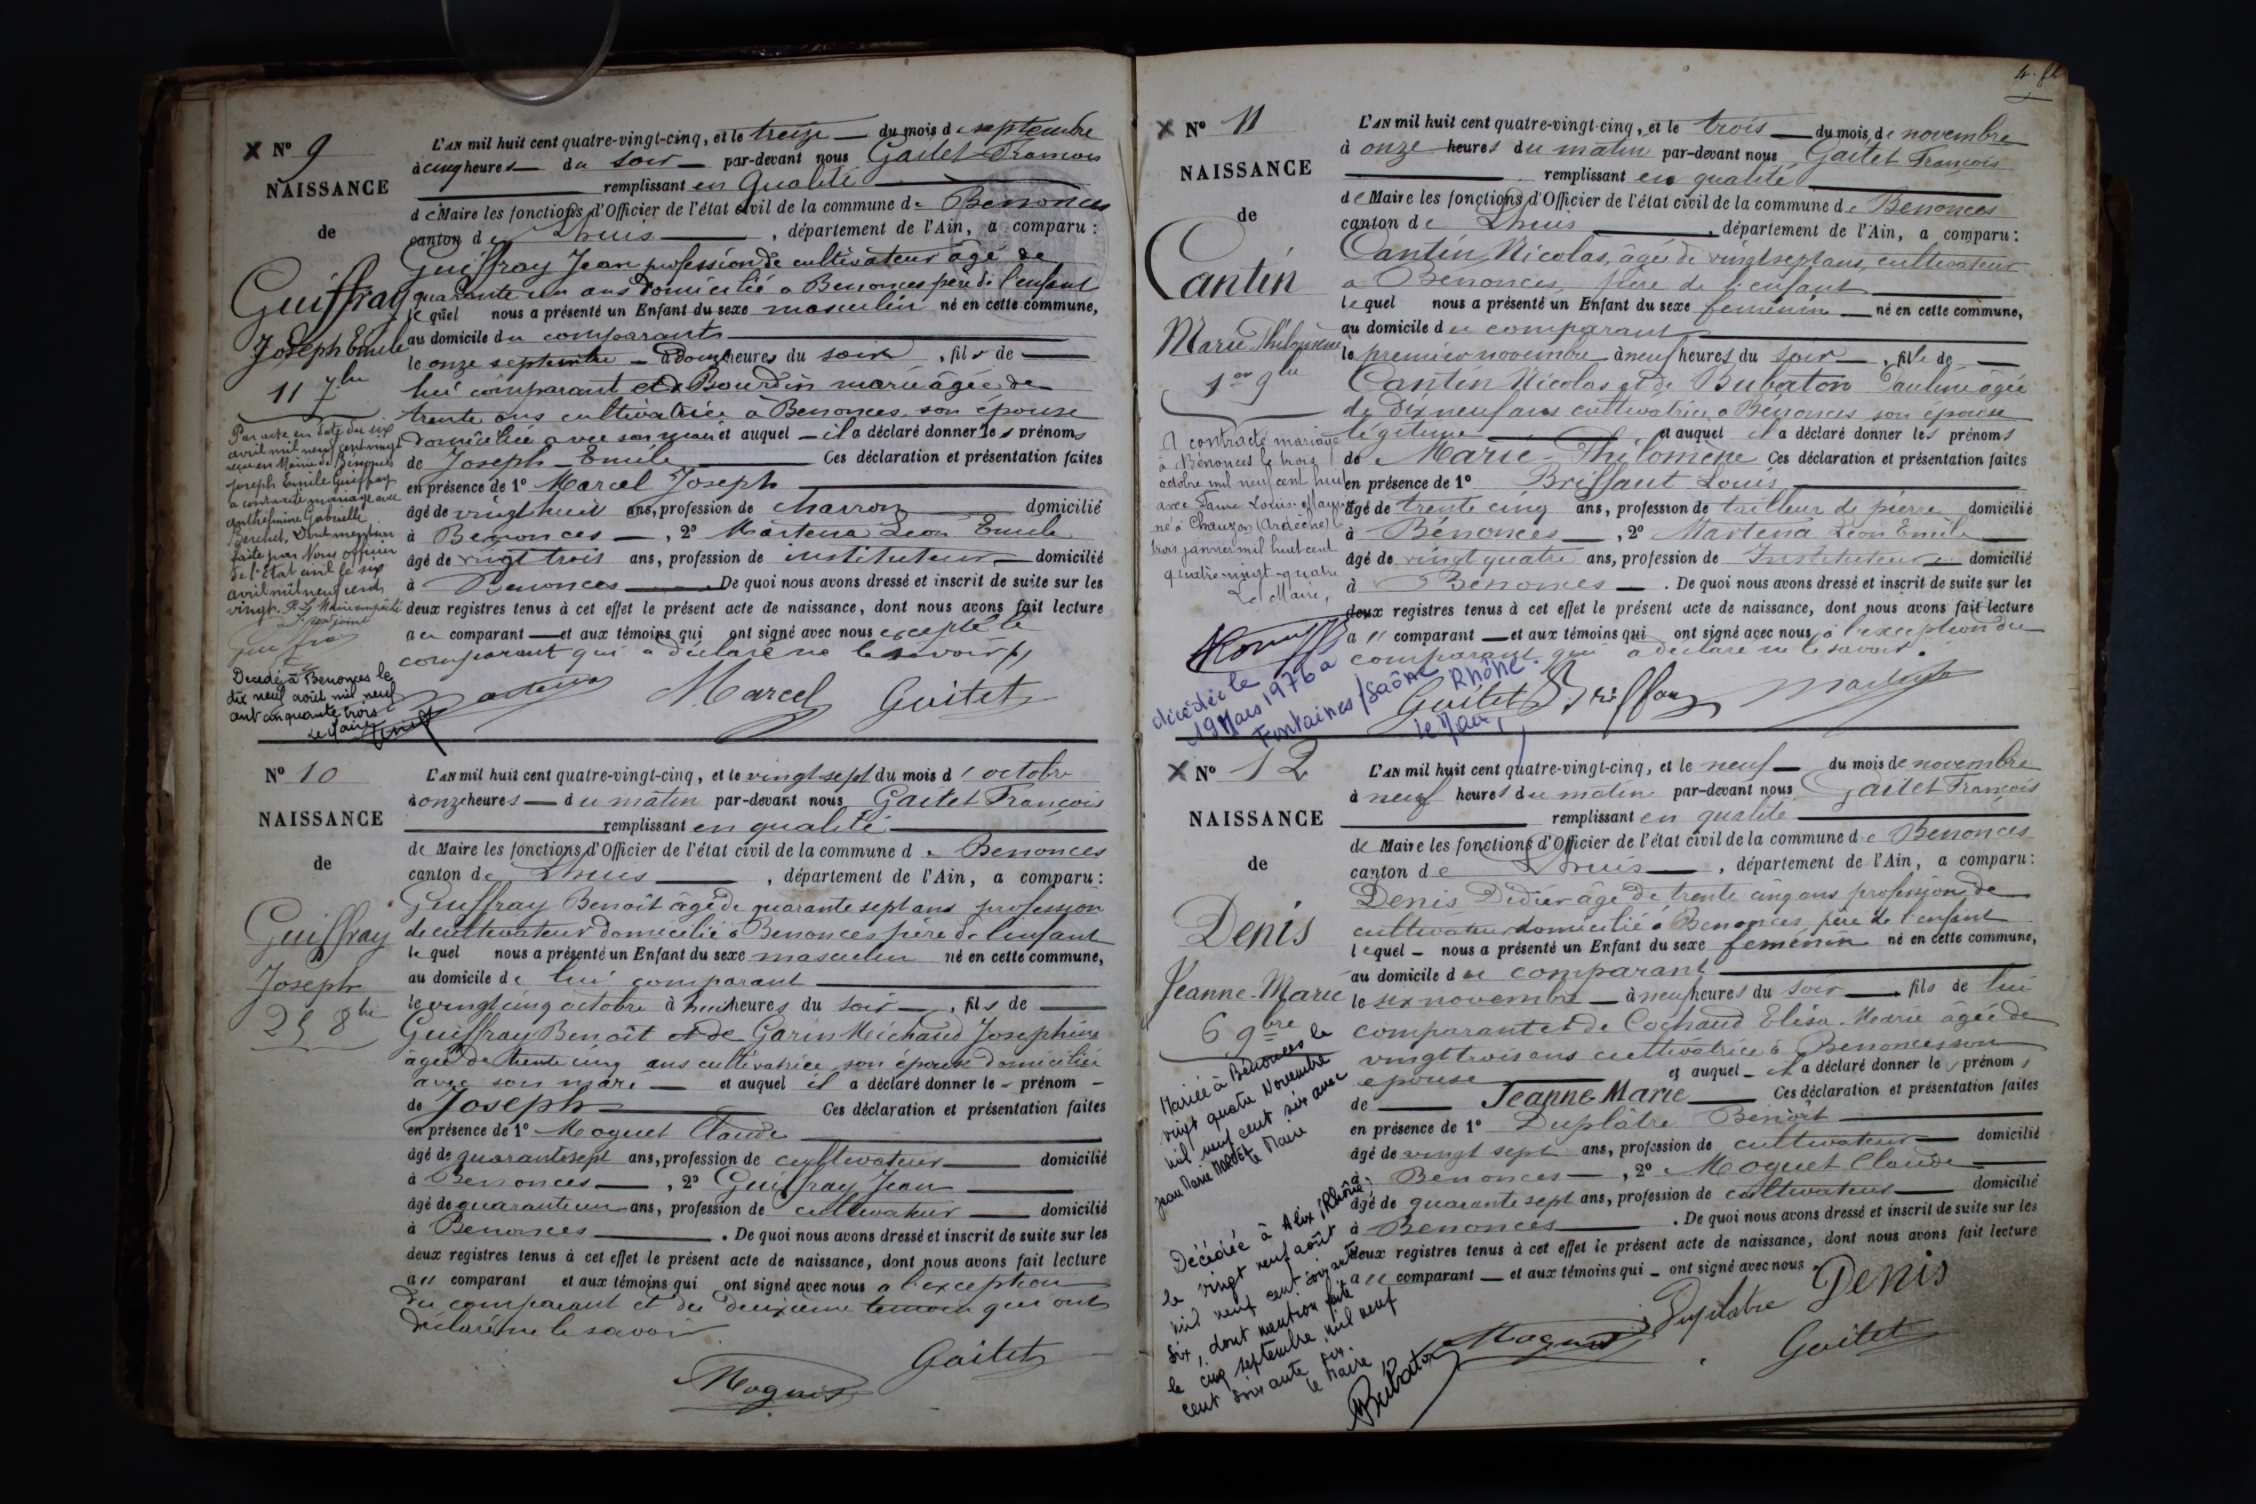 N° 9
NAISSANCE
de
Guiffray
Joseph Emile
11 7bre
Par acte en date du six
avril mil neuf cent vingt
reçu en Mairie de
Joseph Emile Guiffray
a contracté mariage avec
Anthelmine Gabrielle
Berchet, Dont mention
faite par Nous officier
de l'Etat civil le six
avril mil neuf cent
vingt.
Décédé à Benonces le
dix neuf août mil neuf
cent cinquante trois
Le Maire
L'AN mil huit cent quatre-vingt-cinq, et le treize du mois de septembre
à cinq heures du soir par-devant nous Gaitet François
remplissant en qualité
de Maire les fonctions d'Officier de l'état civil de la commune de Benonces
canton de Lhuis, département de l'Ain, a comparu :
Guiffray Jean profession de cultivateur âgé de
quarante un ans domicilié à Benonces père de l'enfant
le quel nous a présenté un Enfant du sexe masculin né en cette commune,
au domicile du comparants
le onze septembre à douze heures du soir, fils de
lui comparant et de Bourdin marie âgée de
trente ans cultivatrice à Benonces son épouse
domiciliée avec son mari et auquel il a déclaré donner les prénoms
de Joseph-Emile Ces déclaration et présentation faites
en présence de 1° Marcel Joseph
âgé de vingt huit ans, profession de charron domicilié
à Benonces, 2° Martena Léon Emile
âgé de vingt trois ans, profession de instituteur domicilié
à Benonces De quoi nous avons dressé et inscrit de suite sur les
deux registres tenus à cet effet le présent acte de naissance, dont nous avons fait lecture
au comparant et aux témoins qui ont signé avec nous excepté le
comparant qui a déclaré ne le savoir
Martena Marcel Gaitet
N° 10
NAISSANCE
de
Guiffray
Joseph
25 8bre
L'AN mil huit cent quatre-vingt-cinq, et le vingt-sept du mois d'octobre
à onze heures du matin par-devant nous Gaitet François
remplissant en qualité
de Maire les fonctions d'Officier de l'état civil de la commune de Benonces
canton de Lhuis, département de l'Ain, a comparu :
Guiffray Benoît âgé de quarante sept ans profession
de cultivateur domicilié à Benonces père de l'enfant
le quel nous a présenté un Enfant du sexe masculin né en cette commune,
au domicile de lui comparant
le vingt cinq octobre à huit heures du soir, fils de
Guiffray Benoît et de Garin Michaud Josephine
âgée de trente cinq ans cultivatrice son épouse domiciliée
avec son mari et auquel il a déclaré donner le prénom
de Joseph Ces déclaration et présentation faites
en présence de 1° Moguet Claude
âgé de quarante sept ans, profession de cultivateur domicilié
à Benonces, 2° Guiffray Jean
âgé de quarante un ans, profession de cultivateur domicilié
à Benonces. De quoi nous avons dressé et inscrit de suite sur les
deux registres tenus à cet effet le présent acte de naissance, dont nous avons fait lecture
au comparant et aux témoins qui ont signé avec nous à l'exception
du comparant et du deuxième temoin qui ont
déclaré ne le savoir
Moguet Gaitet
N° 11
NAISSANCE
de
Cantin
Marie Philomène
1er 9bre
A contracté mariage
à Bénonces le trois
octobre mil neuf cent huit
avec Louis
né à Chauzon (Ardèche) le
trois janvier mil huit cent
quatre-vingt-quatre
Le Maire,
décédée le
19 Mars 1976 à
Fontaines/Saône Rhône.
le Maire,
L'AN mil huit cent quatre-vingt-cinq, et le trois du mois de novembre
à onze heures du matin par-devant nous Gaitet François
remplissant en qualité
de Maire les fonctions d'Officier de l'état civil de la commune de Benonces
canton de Lhuis, département de l'Ain, a comparu :
Cantin Nicolas, âgé de vingt sept ans, cultivateur
à Benonces, père de l'enfant
lequel nous a présenté un Enfant du sexe feminin né en cette commune,
au domicile du comparant
le premier novembre à neuf heures du soir, fille de
Cantin Nicolas et de Bubaton Pauline âgée
de dix neuf ans cultivatrice à Bénonces son épouse
légitime et auquel il a déclaré donner les prénoms
de Marie-Philomène Ces déclaration et présentation faites
en présence de 1° Briffaut Louis
âgé de trente cinq ans, profession de tailleur de pierre domicilié
à Bénonces, 2° Martena Léon Emile
âgé de vingt quatre ans, profession de Instituteur domicilié
à Bénonces. De quoi nous avons dressé et inscrit de suite sur les
deux registres tenus à cet effet le présent acte de naissance, dont nous avons fait lecture
au comparant et aux témoins qui ont signé avec nous à l'exception du
comparant qui a déclaré ne le savoir.
Gaitet Briffaut Martena
N° 12
NAISSANCE
de
Denis
Jeanne-Marie
6 9bre
Mariée à Bénonces le
vingt quatre Novembre
mil neuf cent six avec
Jean Marie
le Maire
Décédée à Alix (Rhône)
le vingt neuf août
mil neuf cent soixante
six, dont mention faite
le cinq septembre mil neuf
cent soixante six.
le Maire
Bubaton
L'AN mil huit cent quatre-vingt-cinq, et le neuf du mois de novembre
à neuf heures du matin par-devant nous Gaitet François
remplissant en qualité
de Maire les fonctions d'Officier de l'état civil de la commune de Benonces
canton de Lhuis, département de l'Ain, a comparu :
Denis Didier âgé de trente cinq ans profession de
cultivateur domicilié à Benonces, père de l'enfant
lequel nous a présenté un Enfant du sexe feménin né en cette commune,
au domicile du comparant
le six novembre à neuf heures du soir, fils de lui
comparant et de Cochaud Elisa-Marie âgée de
vingt trois ans cultivatrice à Benonces son
epouse et auquel il a déclaré donner les prénoms
de Jeanne Marie Ces déclaration et présentation faites
en présence de 1° Duplâtre Benoît
âgé de vingt sept ans, profession de cultivateur domicilié
à Benonces, 2° Moguet Claude
âgé de quarante sept ans, profession de cultivateur domicilié
à Benonces. De quoi nous avons dressé et inscrit de suite sur les
deux registres tenus à cet effet le présent acte de naissance, dont nous avons fait lecture
au comparant et aux témoins qui ont signé avec nous.
Moguet Duplatre Denis
Gaitet